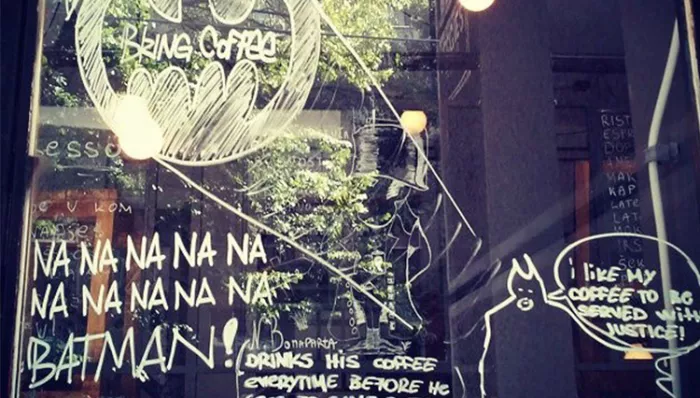 Bring Coffee
esso
e u kom
NA NA NA NA NA
NA NA NA NA NA
BATMAN!
N. Bonaparta
DRINKS HIS COFFEE
everytime BEFORE He
i LiKE MY
COFFEE TO BE
SERVED WITH
JUSTICE!
RIST
ESPR
DOP
AME
MAK
KAP
LATE
LAT
MOK
IRS
ŠEK